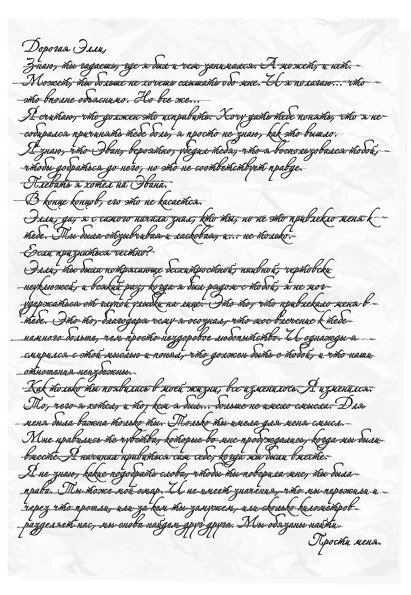 Дорогая Элли,
Знаю, ты гадаешь, где я был и чем занимался. А может, и нет.
Может, ты больше не хочешь слышать обо мне. И я полагаю... что
это вполне объяснимо. Но все же...
Я считаю, что должен это исправить. Хочу дать тебе понять, что я не
собирался причинять тебе боль, я просто не знаю, как это вышло.
Я знаю, что Эван, вероятно, убедил тебя, что я воспользовался тобой,
чтобы добраться до него, но это не соответствует правде.
Плевать я хотел на Эвана.
В конце концов, его это не касается.
Элли, да, я с самого начала знал, кто ты, но не это привлекло меня к
тебе. Ты была обидчивая и ласковая, и... не только.
Если признаться честно?
Элли, ты была потрясающе бесхитростной, наивной, чертовски
неуклюжей, и всякий раз, когда я был рядом с тобой, я не мог
удержаться от глупой улыбки на лице. Это то, что привлекало меня в
тебе. Это то, благодаря чему я осознал, что мое влечение к тебе
намного больше, чем просто нездоровое любопытство. И однажды я
смирился с этой мыслью и понял, что должен быть с тобой, и что наши
отношения неизбежны.
Как только ты появилась в моей жизни, все изменилось. Я изменился.
То, чего я хотел, и то, кем я был... больше не имело смысла. Для
меня была важна только ты. Только ты имела для меня смысл.
Мне нравились те чувства, которые во мне пробуждались, когда мы были
вместе. Я начинал нравиться сам себе, когда мы были вместе.
Я не знаю, какие подобрать слова, чтобы ты поверила мне, ты была
права. Ты тоже мой омар. И не имеет значения, что мы пережили и
через что прошли, или за кем ты замужем, или сколько километров
разделяет нас, мы снова найдем друг друга. Мы обязаны найти.
Прости меня.